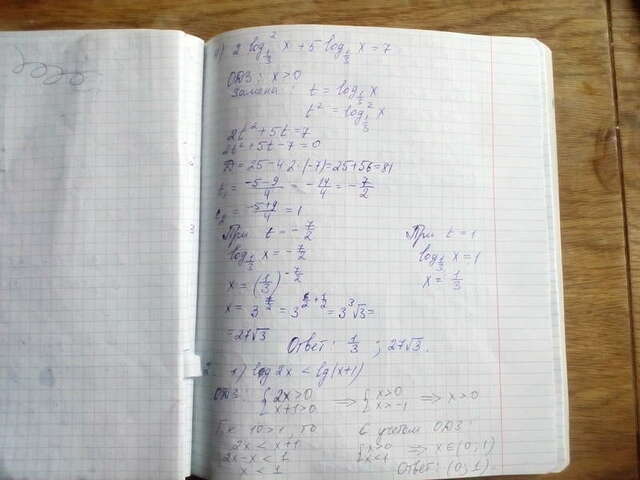 2 log²_{1/3} x + 5 log_{1/3} x = 7
ОДЗ: x>0
Замена: t = log_{1/3} x
t² = log²_{1/3} x
2t²+5t=7
2t²+5t-7=0
D=25-4·2·(-7)=25+56=81
t₁ = (-5-9)/4 = -14/4 = -7/2
t₂ = (-5+9)/4 = 1
При t = -7/2
log_{1/3} x = -7/2
x = (1/3)^{-7/2}
x = 3^{7/2} = 3^{6/2+1/2} = 3³√3 =
= 27√3
При t = 1
log_{1/3} x = 1
x = 1/3
Ответ: 1/3 ; 27√3.
1) log 2x < lg(x+1)
ОДЗ: {2x>0 => {x>0 => x>0
{x+1>0 {x>-1
Т.к 10>1, то
2x < x+1
2x-x < 1
x < 1
С учетом ОДЗ:
{x>0 => x∈(0;1)
{x<1
Ответ: (0;1).